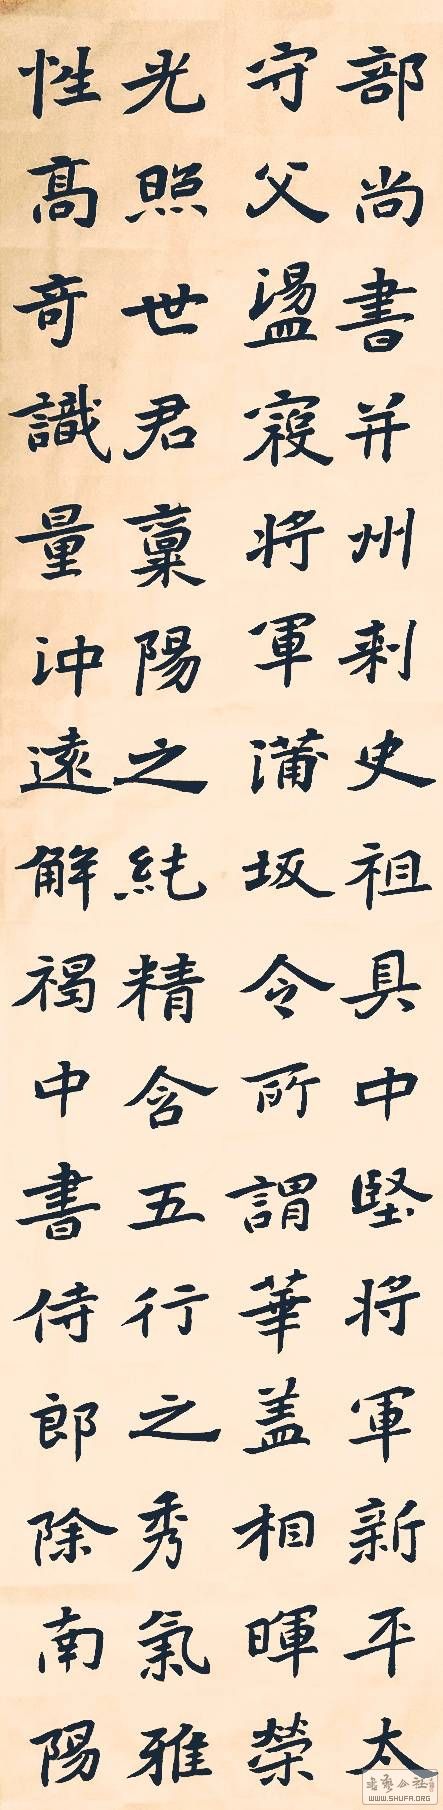 部尚書并州刺史祖具中堅將軍新平太
守父盪寇將軍蒲坂令所謂華盖相暉榮
光照世君稟陽之純精含五行之秀氣雅
性高奇識量沖遠解褐中書侍郎除南陽
WWW.SHUFA.ORG